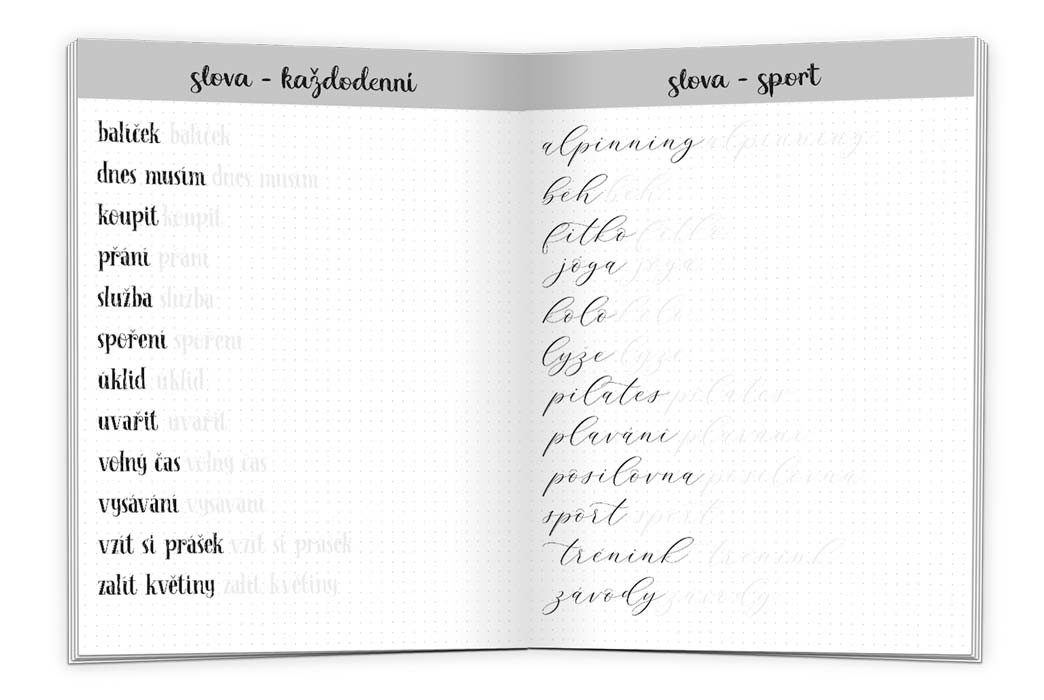 slova - každodenní
balíček balíček
dnes musím dnes musím
koupit koupit
přání přání
služba služba
spoření spoření
úklid úklid
uvařit uvařit
volný čas volný čas
vysávání vysávání
vzít si prášek vzít si prášek
zalít květiny zalít květiny
slova - sport
alpinning alpinning
běh běh
fitko fitko
jóga jóga
kolo kolo
lyže lyže
pilates pilates
plavání plavání
posilovna posilovna
sport sport
trénink trénink
závody závody